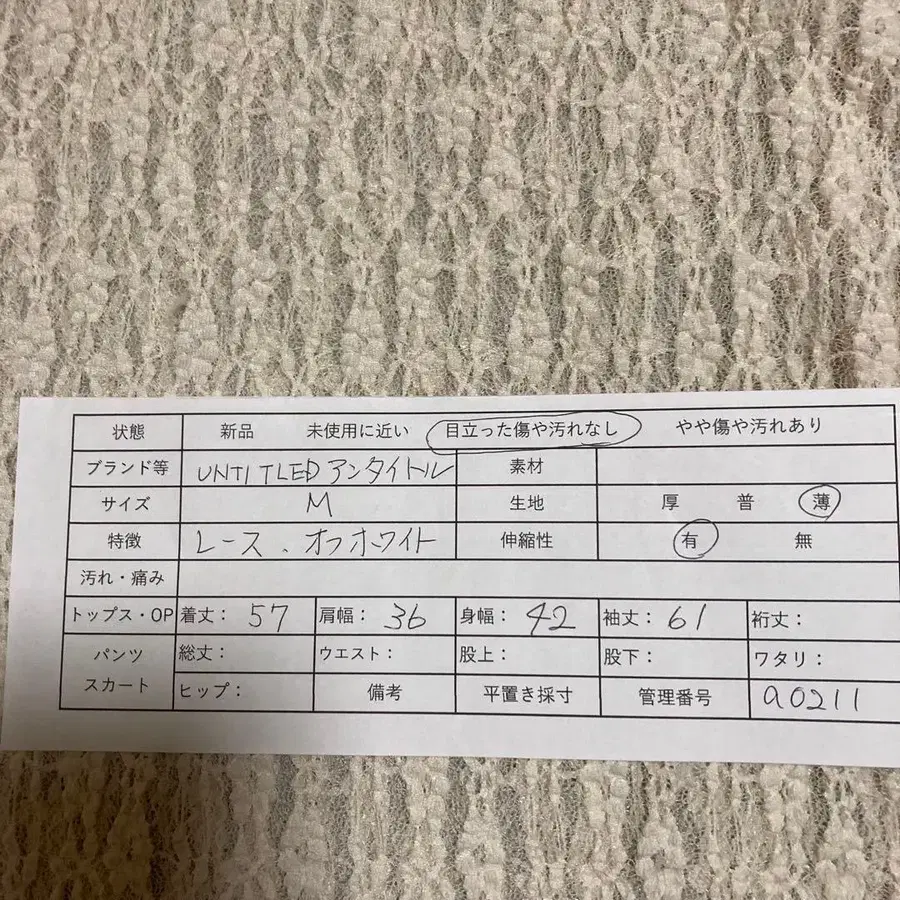 状態 新品 未使用に近い 目立った傷や汚れなし やや傷や汚れあり
ブランド等 UNTITLED アンタイトル 素材
サイズ M 生地 厚 普 薄
特徴 レース、オフホワイト 伸縮性 有 無
汚れ・痛み
トップス・OP 着丈: 57 肩幅: 36 身幅: 42 袖丈: 61 裄丈:
パンツ 総丈: ウエスト: 股上: 股下: ワタリ:
スカート ヒップ: 備考 平置き採寸 管理番号 a0211